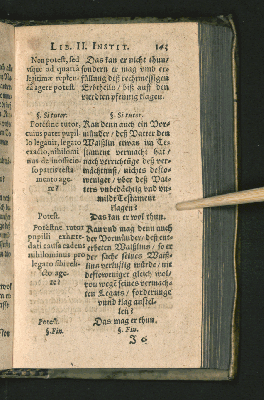 LIB. II. INSTIT. 143
Non potest, sed
usque ad quartã
legitimæ replen-
dã agere potest.
Das kan er nicht thun/
sondern er mag umb er-
füllung deß rechtmessigen
Erbtheiln / biß auff den
vierdten pfening klagen.
§. Si tutor.
Potéstne tutor,
cuius pater pupil
lo legavit, legato
exacto, nihilomi
nus de inofficio-
so patris testa
mento age-
re?
§. Si tutor.
Kan denn auch ein Vor-
münder / deß Vatter dem
Wäißlin etwas im Te-
stament vermacht hat /
nach verrichtũge deß ver-
mächtnuß / nichts desto-
weniger / uber deß Vat-
ters unbedächtig und un-
mildt Testament
klagen?
Potest.
Das kan er wol thun.
Potéstne tutor
pupilli exhære-
dati causa cadens
nihilominus pro
legato sibi reli-
cto age-
re?
Kan und mag denn auch
der Vormünder / deß ent-
erbeten Wäißlins / so er
der sache seines Wäiß-
lins verlustig würde / nit
destoweniger gleich wol
von wegẽ seines vermach-
ten Legats / forderunge
und klag anstel-
len?
Potest.
§. Fin.
Das mag er thun.
§. Fin.